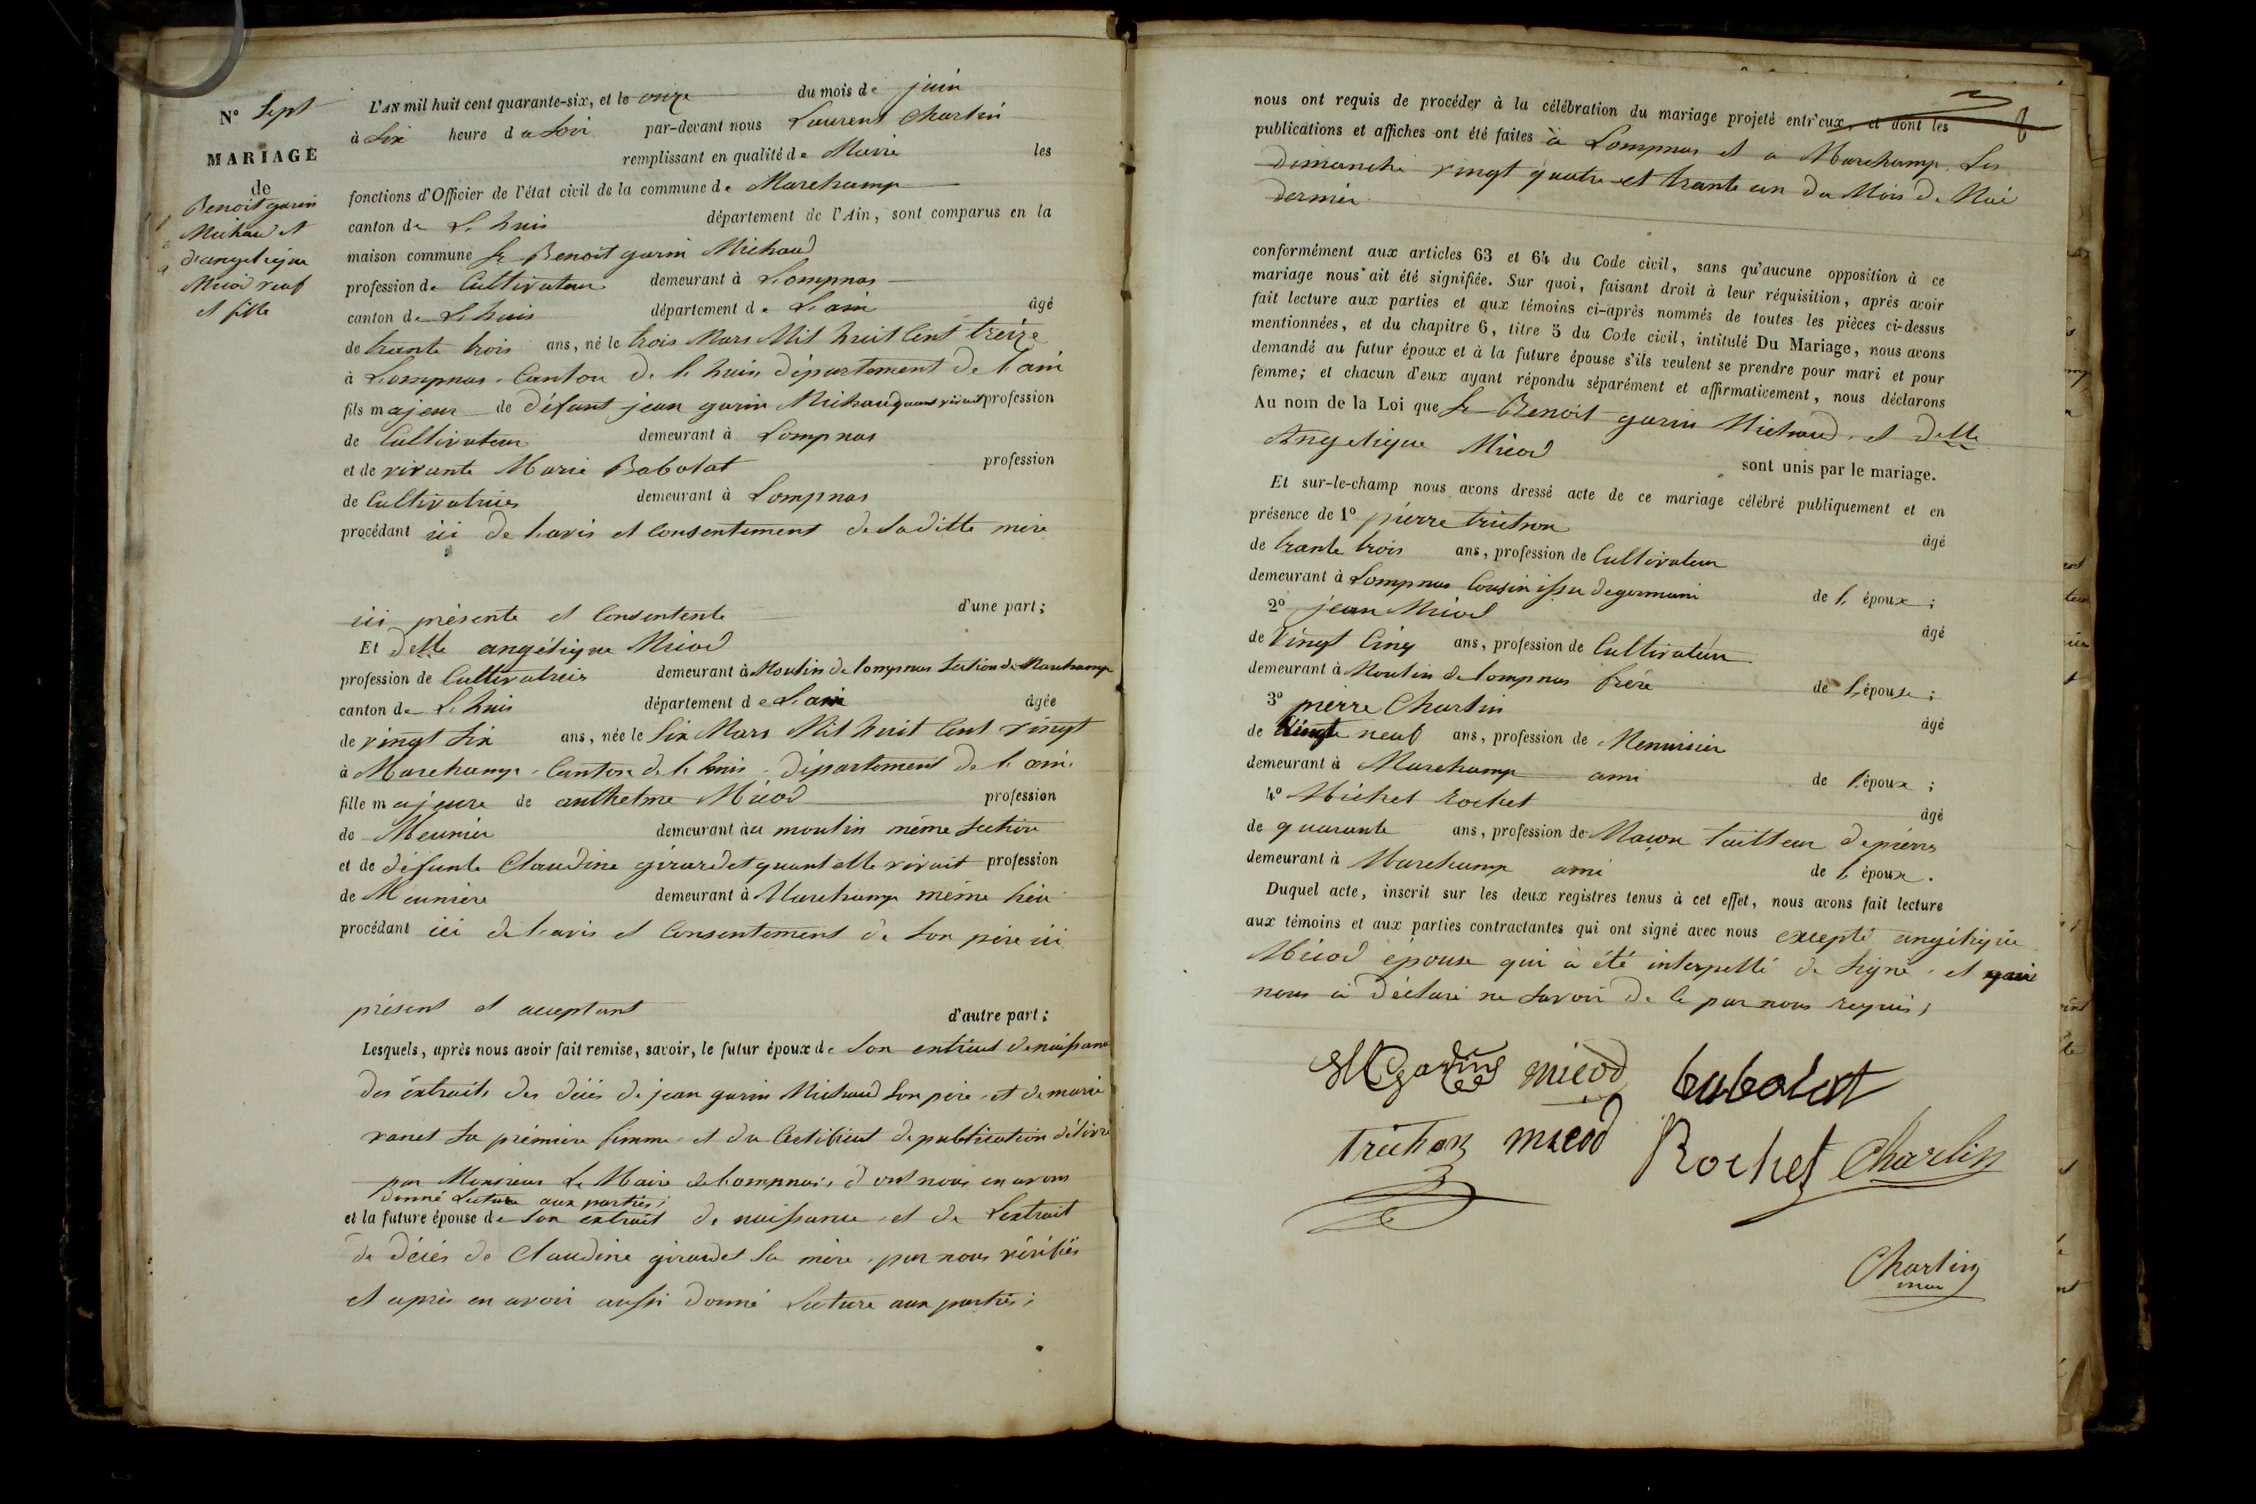 N° Sept
MARIAGE
de
Benoit garin
Michaud et
d'angelique
Micod veuf
et fille
L'AN mil huit cent quarante-six, et le onze du mois de juin
à Six heure du Soir par-devant nous Laurent Charlin
remplissant en qualité de Maire les
fonctions d'Officier de l'état civil de la commune de Marchamp
canton de L'huis département de l'Ain, sont comparus en la
maison commune Sr Benoit garin Michaud
profession de Cultivateur demeurant à Lompnas
canton de L'huis département de L'ain âgé
de trante trois ans, né le trois Mars Mil huit Cent treize
à Lompnas Canton de L'huis département de L'ain
fils majeur de défunt jean garin Michaud quant vivait profession
de Cultivateur demeurant à Lompnas
et de vivante Marie Babolat profession
de Cultivatrice demeurant à Lompnas
procédant ici de L'avis et Consentement de Saditte mère
ici présente et Consentente d'une part;
Et Delle angélique Micod
profession de Cultivatrice demeurant à Moulin de Lompnas Section de Marchamp
canton de L'huis département de L'ain âgée
de vingt Six ans, née le Six Mars Mil huit Cent vingt
à Marchamp Canton de L'huis département de L'ain
fille majeure de anthelme Micod profession
de Meunier demeurant au moulin même Section
et de défunte Claudine girardet quant elle vivait profession
de Meunière demeurant à Marchamp même lieu
procédant ici de L'avis et Consentement de Son père ici
présent et acceptant d'autre part;
Lesquels, après nous avoir fait remise, savoir, le futur époux de Son extrait de naissance
des extraits des décès de jean garin Michaud Son père et de marie
vanet Sa première femme et du Certificat de publication délivré
par Monsieur Le Maire de Lompnas, dont nous en avons
donné Lecture aux parties;
et la future épouse de Son extrait de naissance et de L'extrait
de décès de Claudine girardet Sa mère par nous vérifiés
et après en avoir aussi donné Lecture aux parties;
nous ont requis de procéder à la célébration du mariage projeté entr'eux, et dont les
publications et affiches ont été faites à Lompnas et à Marchamp Les
dimanche vingt quatre et trante un du Mois de Mai
dernier
conformément aux articles 63 et 64 du Code civil, sans qu'aucune opposition à ce
mariage nous ait été signifiée. Sur quoi, faisant droit à leur réquisition, après avoir
fait lecture aux parties et aux témoins ci-après nommés de toutes les pièces ci-dessus
mentionnées, et du chapitre 6, titre 5 du Code civil, intitulé Du Mariage, nous avons
demandé au futur époux et à la future épouse s'ils veulent se prendre pour mari et pour
femme; et chacun d'eux ayant répondu séparément et affirmativement, nous déclarons
Au nom de la Loi que Sr Benoit garin Michaud et Delle
Angelique Micod sont unis par le mariage.
Et sur-le-champ nous avons dressé acte de ce mariage célébré publiquement et en
présence de 1° pierre trichon âgé
de trante trois ans, profession de Cultivateur
demeurant à Lompnas Cousin issu degermain de L'époux;
2° jean Micod âgé
de Vingt Cinq ans, profession de Cultivateur
demeurant à Moulin de Lompnas frère de L'épouse;
3° pierre Charlin âgé
de neuf ans, profession de Menuisier
demeurant à Marchamp ami de L'époux;
4° Michel Rochet âgé
de quarante ans, profession de Maçon tailleur de pierres
demeurant à Marchamp ami de L'époux.
Duquel acte, inscrit sur les deux registres tenus à cet effet, nous avons fait lecture
aux témoins et aux parties contractantes qui ont signé avec nous excepté angélique
Micod épouse qui à été interpellé de Signé et qui
nous à déclaré ne Savoir de ce par nous requis;
garin micod babolat
trichon micod Rochet Charlin
Charlin